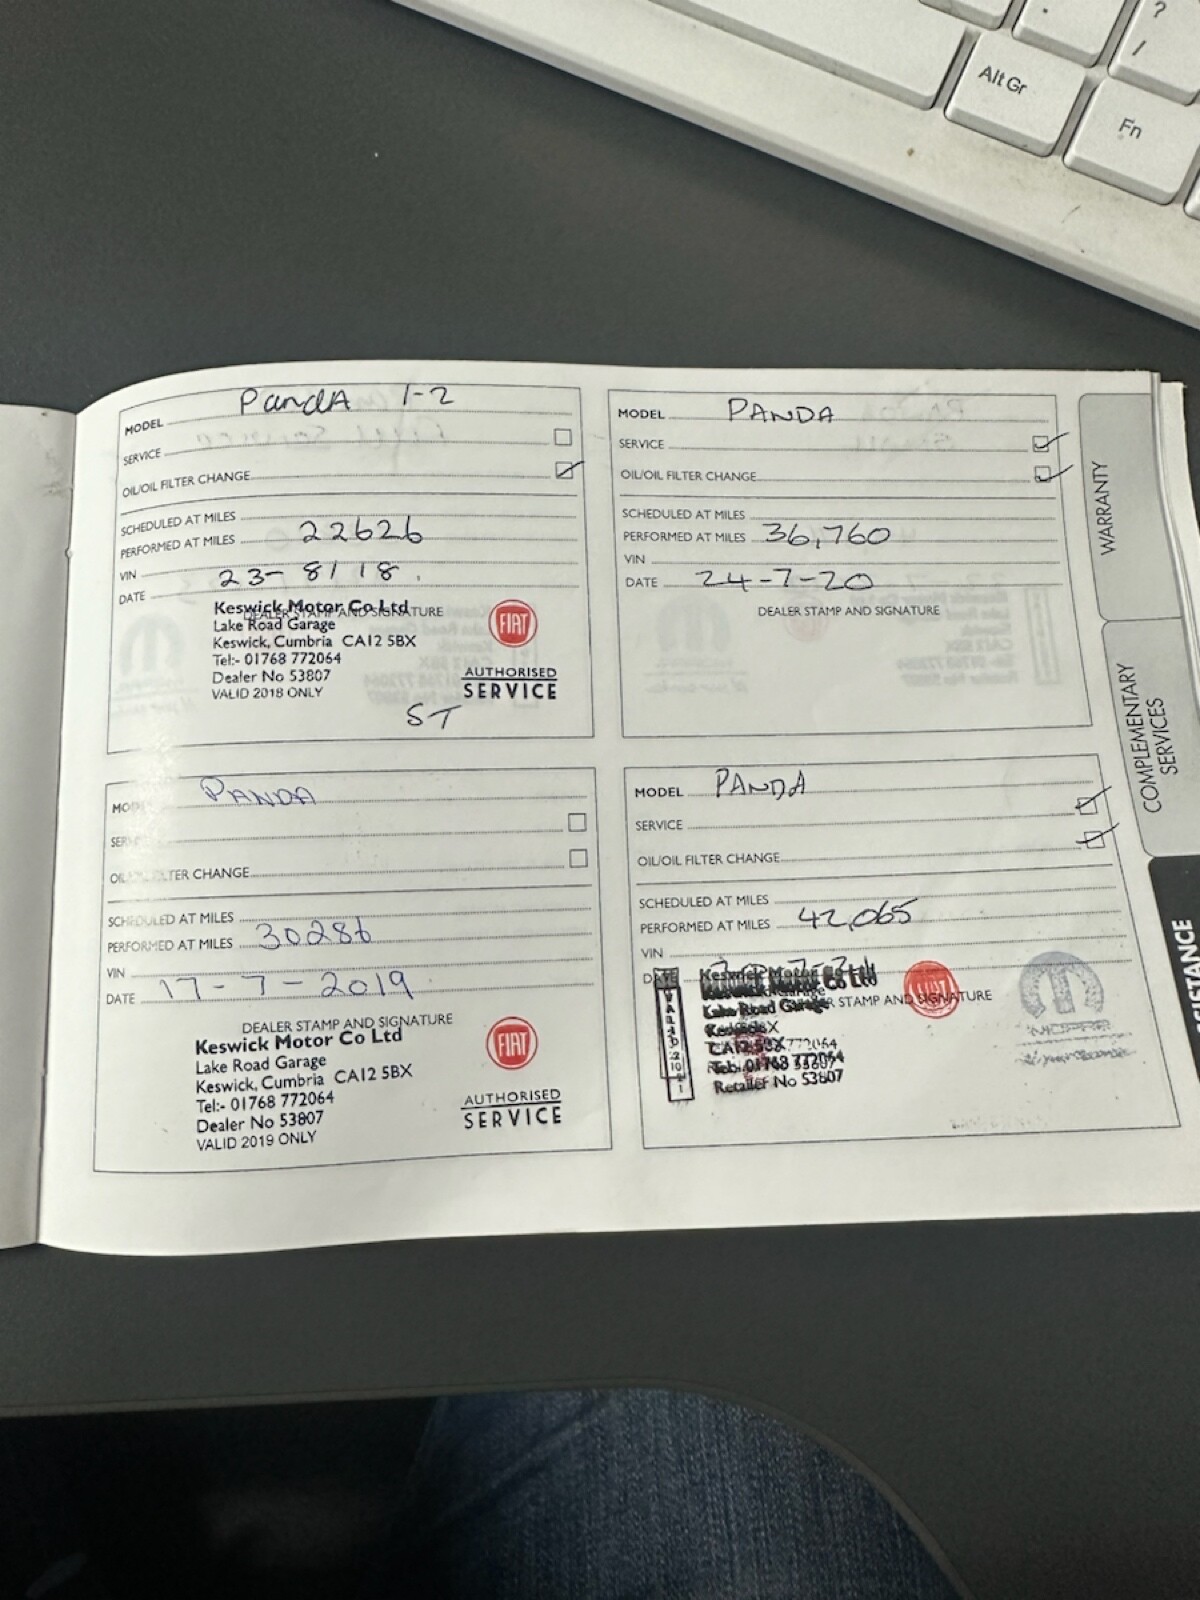 Alt Gr
Fn
?
/
MODEL PandA 1-2
SERVICE
OIL/OIL FILTER CHANGE
SCHEDULED AT MILES
PERFORMED AT MILES 22626
VIN
DATE 23-8/18.
DEALER STAMP AND SIGNATURE
Keswick Motor Co Ltd
Lake Road Garage
Keswick, Cumbria CA12 5BX
Tel:- 01768 772064
Dealer No 53807
VALID 2018 ONLY
FIAT
AUTHORISED
SERVICE
ST
MODEL PANDA
SERVICE
OIL/OIL FILTER CHANGE
SCHEDULED AT MILES
PERFORMED AT MILES 30286
VIN
DATE 17-7-2019
DEALER STAMP AND SIGNATURE
Keswick Motor Co Ltd
Lake Road Garage
Keswick, Cumbria CA12 5BX
Tel:- 01768 772064
Dealer No 53807
VALID 2019 ONLY
FIAT
AUTHORISED
SERVICE
MODEL PANDA
SERVICE
OIL/OIL FILTER CHANGE
SCHEDULED AT MILES
PERFORMED AT MILES 36,760
VIN
DATE 24-7-20
DEALER STAMP AND SIGNATURE
MODEL PANDA
SERVICE
OIL/OIL FILTER CHANGE
SCHEDULED AT MILES
PERFORMED AT MILES 42,065
VIN
STAMP AND SIGNATURE
Keswick Motor Co Ltd
Lake Road Garage
CA12 5BX
Tel: 01768 772064
Retailer No 53807
WARRANTY
COMPLEMENTARY
SERVICES